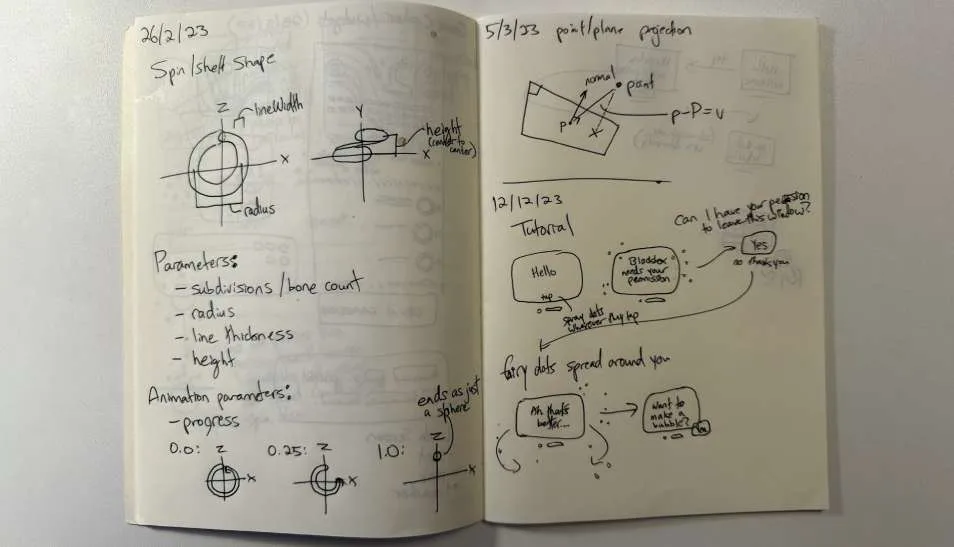 26/2/23
Spin/shell Shape
Z
lineWidth
X
radius
Y
height
(center to
center)
X
Parameters:
- subdivisions/bone count
- radius
- line thickness
- height
Animation parameters:
- progress
ends as just
a sphere
0.0:
Z
X
0.25:
Z
X
1.0:
Z
X
5/3/23 point/plane projection
normal
point
P
p-P=v
12/12/23
Tutorial
Can I have your permission
to leave this window?
Hello
tap
needs your
permission
Yes
no thank you
spray dots
wherever they tap
fairy dots spread around you
Ah that's
better...
Want to
make a
bubble?